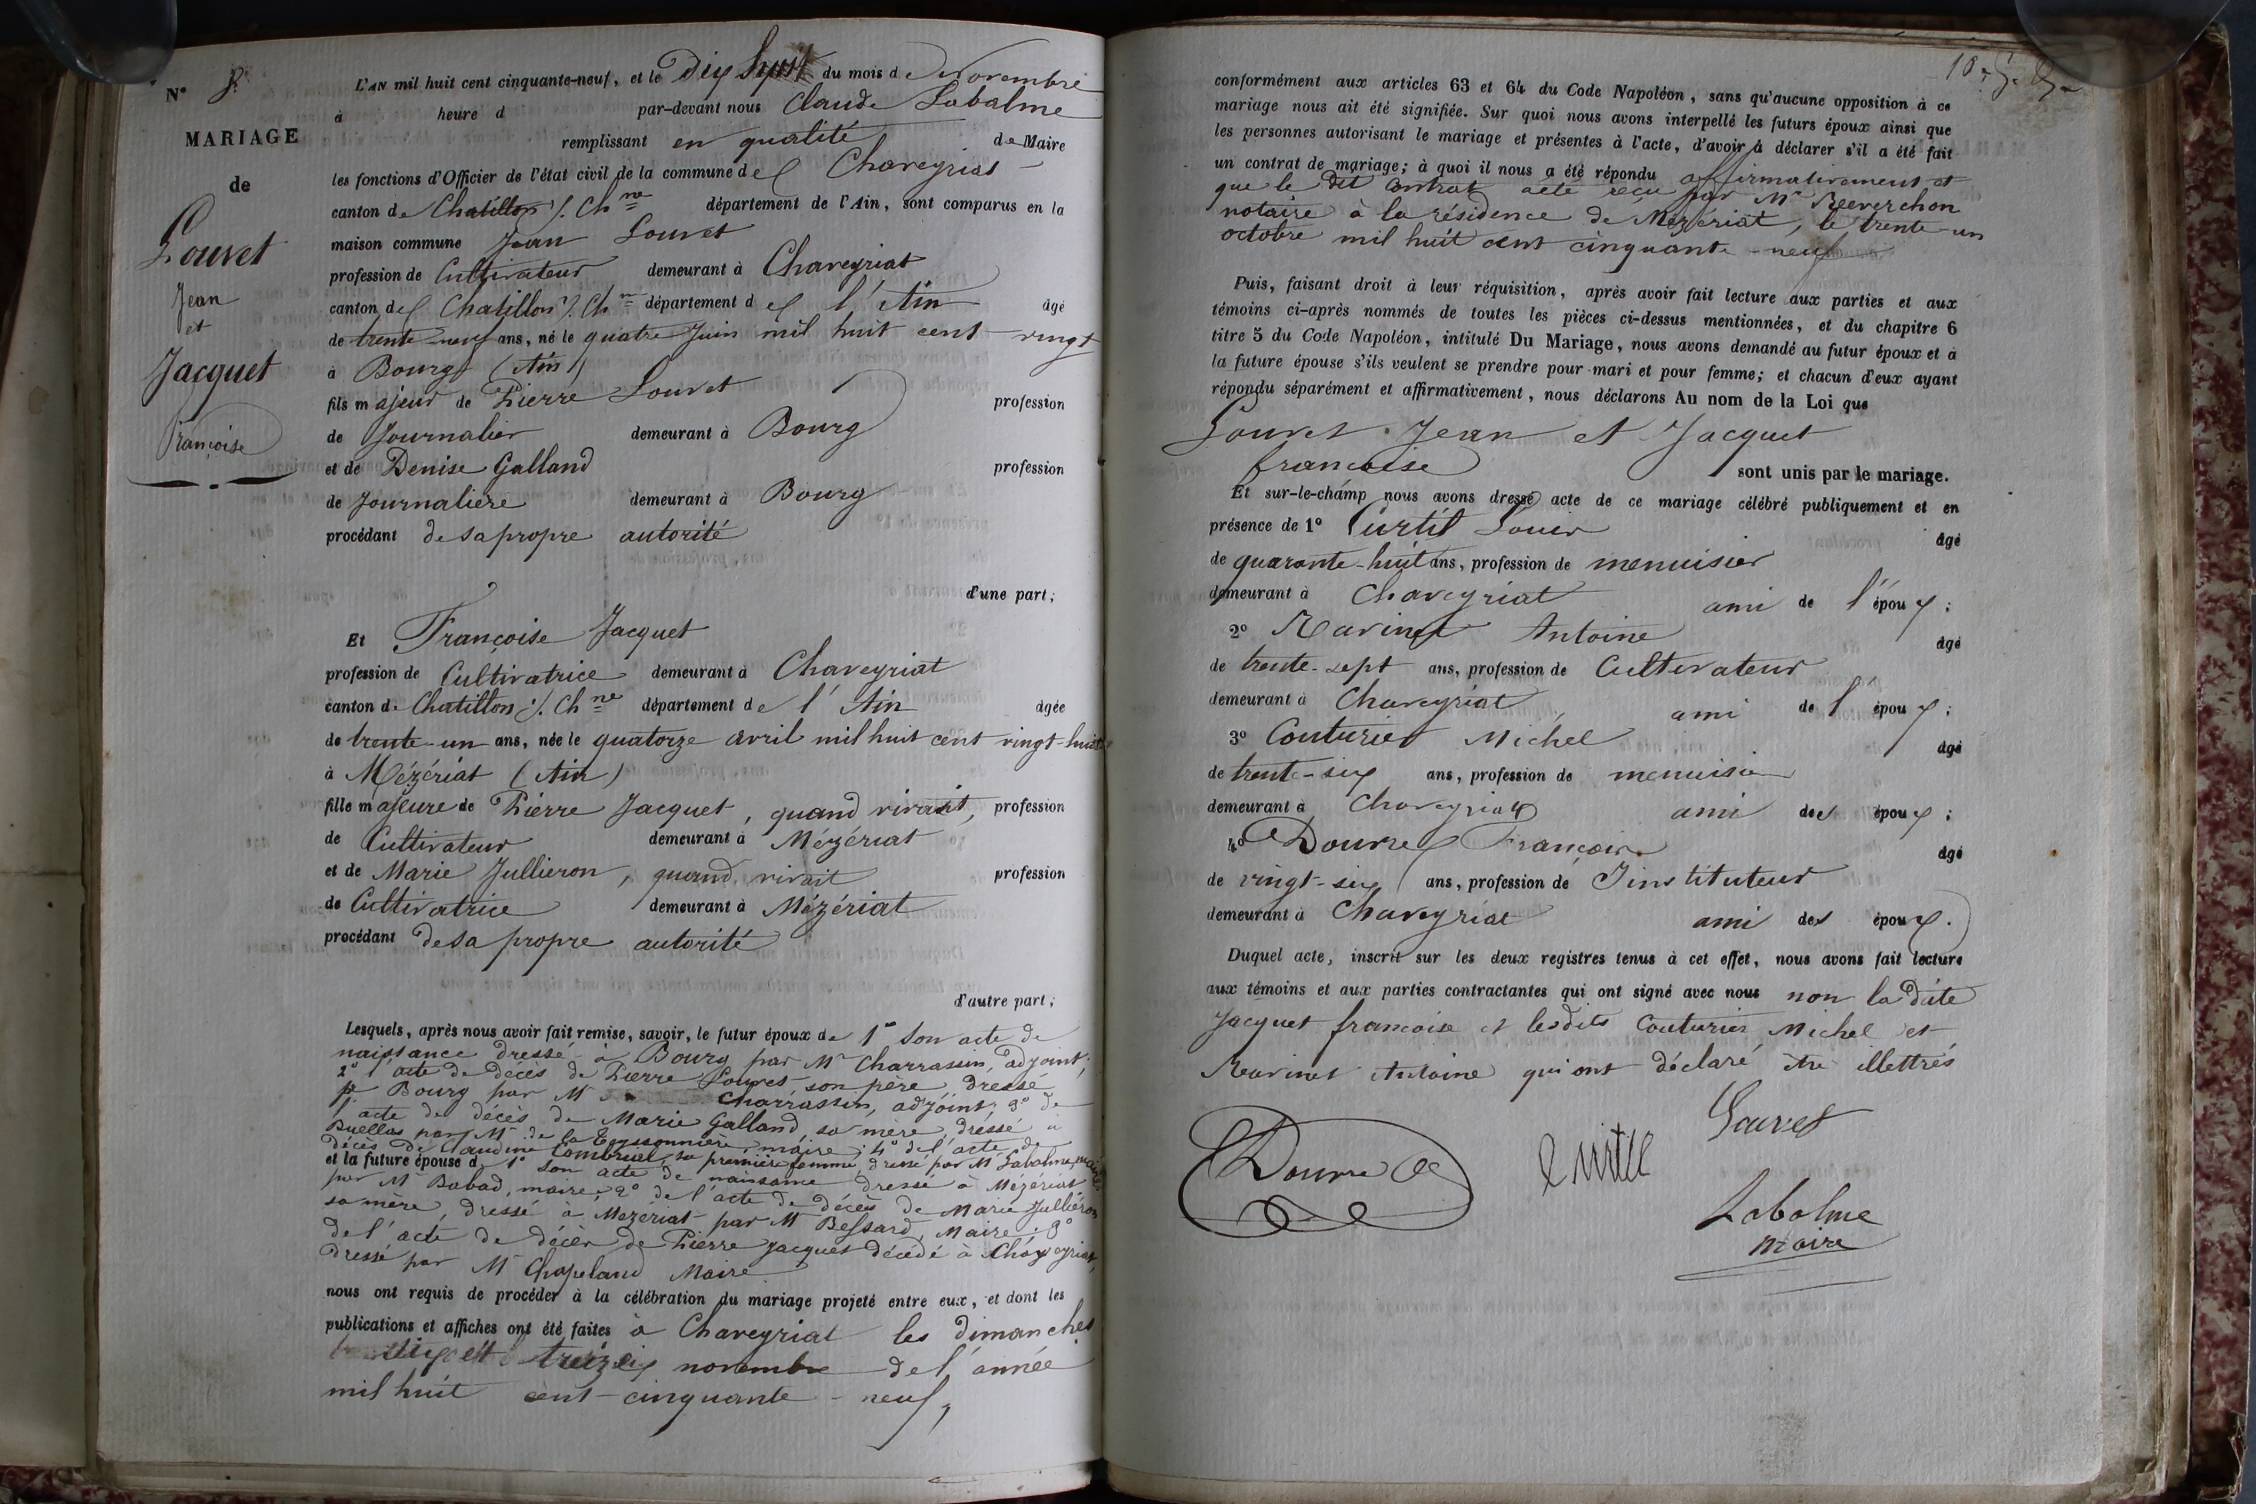 N° 8.
MARIAGE
de
Louvet
Jean
et
Jacquet
Françoise
L'AN mil huit cent cinquante-neuf, et le Dix huit du mois de Novembre
à heure d par-devant nous Claude Labalme
remplissant en qualité de Maire
les fonctions d'Officier de l'état civil de la commune de Chaveyriat
canton de Chatillon s/. Ch ne département de l'Ain, sont comparus en la
maison commune Jean Louvet
profession de Cultivateur demeurant à Chaveyriat
canton de Chatillon s/. Ch ne département de l'Ain âgé
de trente-neuf ans, né le quatre Juin mil huit cent vingt
à Bourg (Ain)
fils majeur de Pierre Louvet profession
de Journalier demeurant à Bourg
et de Denise Galland profession
de Journaliere demeurant à Bourg
procédant de sa propre autorité
d'une part;
Et Françoise Jacquet
profession de Cultivatrice demeurant à Chaveyriat
canton de Chatillon s/. Ch ne département de l'Ain âgée
de trente-un ans, née le quatorze avril mil huit cent vingt-huit
à Mézériat (Ain)
fille majeure de Pierre Jacquet, quand vivait, profession
de Cultivateur demeurant à Mézériat
et de Marie Jullieron, quand vivait profession
de Cultivatrice demeurant à Mézériat
procédant de sa propre autorité
d'autre part;
Lesquels, après nous avoir fait remise, savoir, le futur époux de 1° Son acte de
naissance dressé à Bourg par Mr Charrassin, adjoint;
2° l'acte de décès de Pierre Louvet son père dressé
Bourg par M Charrassin, adjoint; 3° de
l'acte de décès de Marie Galland, sa mère, dressé à
Buellas par Mr de la maire; 4° de l'acte de
décès de Claudine sa première femme, dressé par Mr Labalme, maire
et la future épouse d 1° son acte de naissance dressé à Mézériat
par Mr Babad, maire; 2° de l'acte de décès de Marie Jullieron
sa mère, dressé à Mézériat par Mr Bessard, Maire; 3°
de l'acte de décès de Pierre Jacquet décédé à Chaveyriat,
dressé par Mr Chapeland Maire
nous ont requis de procéder à la célébration du mariage projeté entre eux, et dont les
publications et affiches ont été faites à Chaveyriat les dimanches
et treize novembre de l'année
mil huit cent cinquante-neuf,
conformément aux articles 63 et 64 du Code Napoléon, sans qu'aucune opposition à ce
mariage nous ait été signifiée. Sur quoi nous avons interpellé les futurs époux ainsi que
les personnes autorisant le mariage et présentes à l'acte, d'avoir à déclarer s'il a été fait
un contrat de mariage; à quoi il nous a été répondu affirmativement et
que le dit contrat a été reçu par Mr Reverchon
notaire à la résidence de Mézériat, le trente-un
octobre mil huit cent cinquante-neuf
Puis, faisant droit à leur réquisition, après avoir fait lecture aux parties et aux
témoins ci-après nommés de toutes les pièces ci-dessus mentionnées, et du chapitre 6
titre 5 du Code Napoléon, intitulé Du Mariage, nous avons demandé au futur époux et à
la future épouse s'ils veulent se prendre pour mari et pour femme; et chacun d'eux ayant
répondu séparément et affirmativement, nous déclarons Au nom de la Loi que
Louvet Jean et Jacquet
francoise sont unis par le mariage.
Et sur-le-champ nous avons dressé acte de ce mariage célébré publiquement et en
présence de 1° Curtil Louis âgé
de quarante-huit ans, profession de menuisier
demeurant à Chaveyriat ami de l'époux;
2° Ravinet Antoine âgé
de trente-sept ans, profession de Cultivateur
demeurant à Chaveyriat ami de l'époux;
3° Couturier Michel âgé
de trente-six ans, profession de menuisier
demeurant à Chaveyriat ami des époux;
4° Dourre François âgé
de vingt-six ans, profession de Instituteur
demeurant à Chaveyriat ami des époux.
Duquel acte, inscrit sur les deux registres tenus à cet effet, nous avons fait lecture
aux témoins et aux parties contractantes qui ont signé avec nous non la dite
Jacquet francoise et lesdits Couturier Michel et
Ravinet Antoine qui ont déclaré être illettrés
Louvet
Dourre
Curtil
Labalme
maire